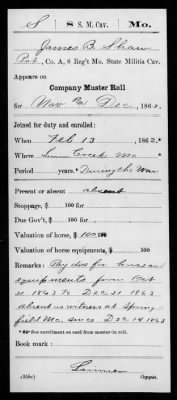 S | 8 S. M. Cav. | Mo.
James B. Shaw
Pvt., Co. A, 8 Reg't Mo. State Militia Cav.
Appears on
Company Muster Roll
for Nov & Dec, 186
Joined for duty and enrolled:
When Feb 13, 1862.*
Where Linn Creek Mo
Period years. During the War
Present or absent absent
Stoppage, $ 100 for
Due Gov't, $ 100 for
Valuation of horse, $ 100
Valuation of horse equipments, $ 100
Remarks: Pay due for horse and
equipments from Oct
31 1863 to Dec 31 1863
absent as witness at Spring-
field Mo. since Dec 14 1863
*See enrollment on card from muster-in roll.
Book mark:
(358c) Copyist.